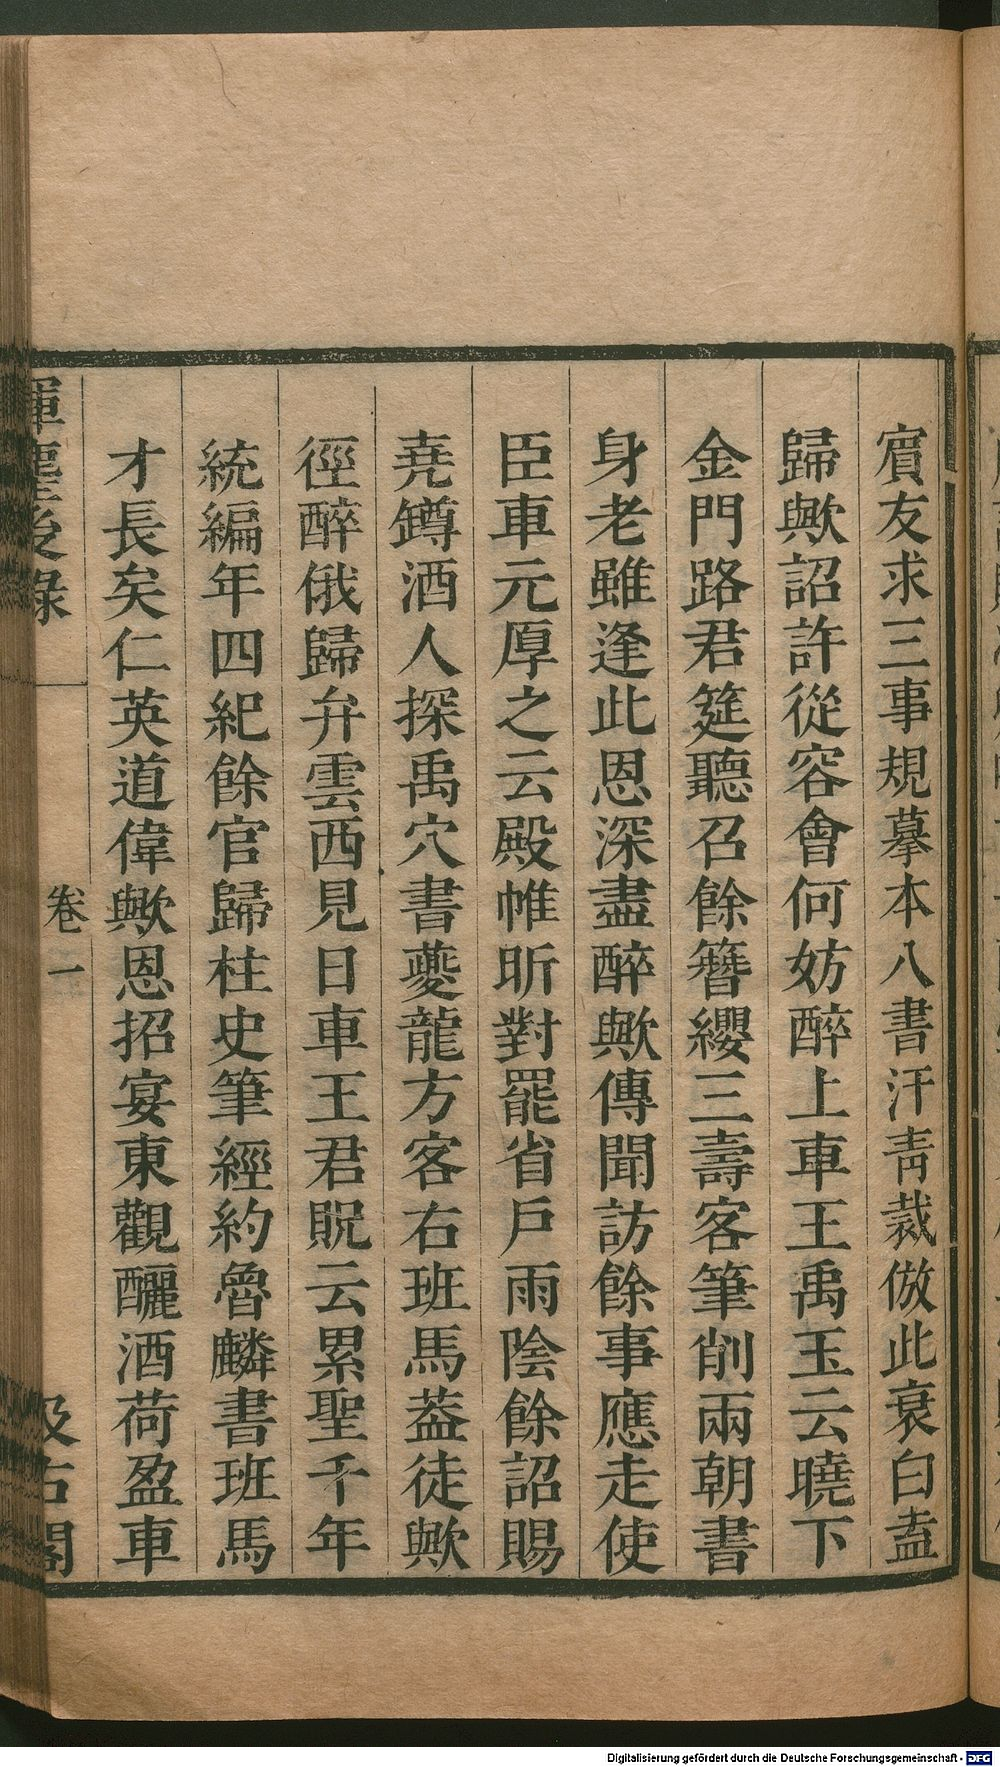 賔友求三事規摹本八書汗青裁倣此衰白盍
歸歟詔許從容會何妨醉上車王禹玉云曉下
金門路君筵聽召餘簪纓三壽客筆削兩朝書
身老雖逢此恩深盡醉歟傳聞訪餘事應走使
臣車元厚之云殿帷昕對罷省戶雨陰餘詔賜
堯鐏酒人探禹穴書夔龍方客右班馬葢徒歟
徑醉俄歸弁雲西見日車王君貺云累聖千年
統編年四紀餘官歸柱史筆經約魯麟書班馬
才長矣仁英道偉歟恩招宴東觀釃酒荷盈車
揮麈後錄
卷一
汲古閣
Digitalisierung gefördert durch die Deutsche Forschungsgemeinschaft - DFG